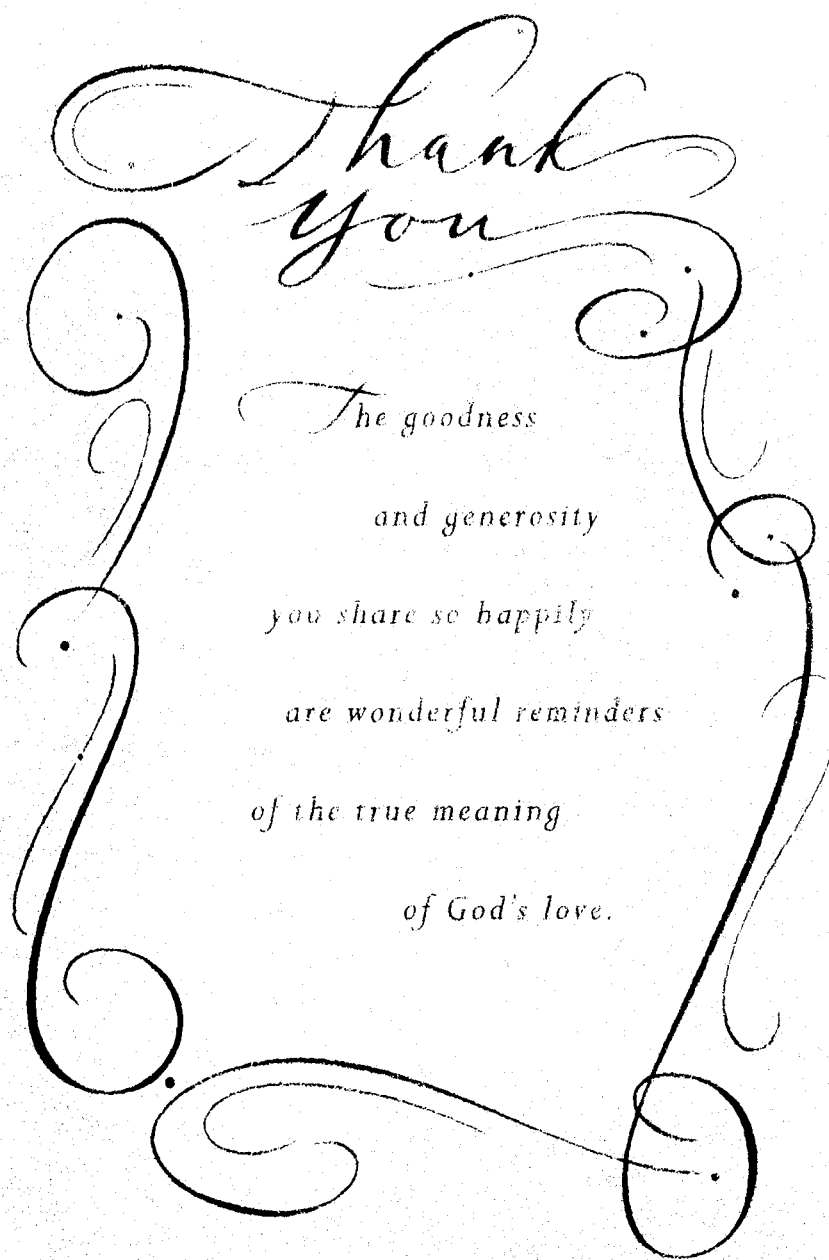 Thank
you
The goodness
and generosity
you share so happily
are wonderful reminders
of the true meaning
of God's love.